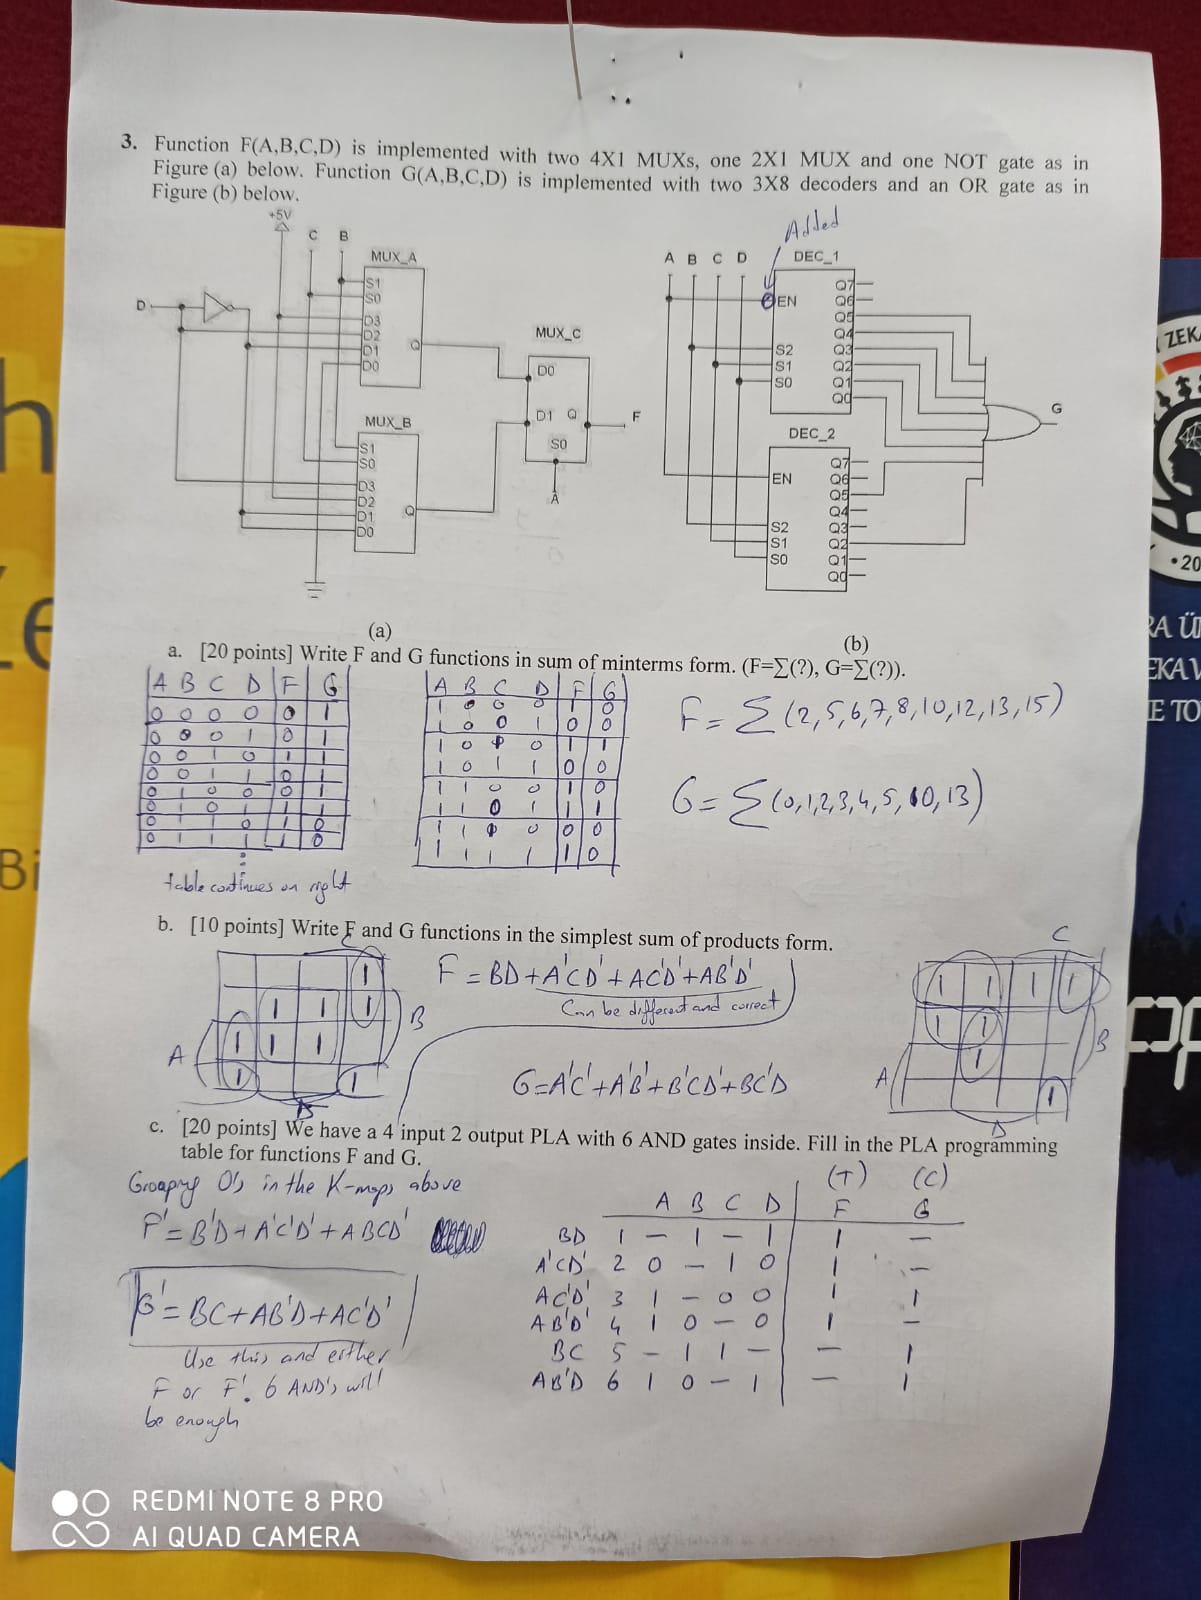 3. Function F(A,B,C,D) is implemented with two 4X1 MUXs, one 2X1 MUX and one NOT gate as in
Figure (a) below. Function G(A,B,C,D) is implemented with two 3X8 decoders and an OR gate as in
Figure (b) below.
+5V
C B
MUX_A
S1
S0
D
D3
D2
D1
D0
Q
MUX_B
S1
S0
D3
D2
D1
D0
Q
MUX_C
D0
D1 Q
S0
F
A
Added
A B C D DEC_1
EN
S2
S1
S0
Q7
Q6
Q5
Q4
Q3
Q2
Q1
Q0
G
DEC_2
EN
S2
S1
S0
Q7
Q6
Q5
Q4
Q3
Q2
Q1
Q0
(a)
(b)
a. [20 points] Write F and G functions in sum of minterms form. (F=∑(?), G=∑(?)).
A B C D F G
0 0 0 0 0 1
0 0 0 1 0 1
0 0 1 0 1 1
0 0 1 1 0 1
0 1 0 0 0 1
0 1 0 1 1 1
0 1 1 0 1 0
0 1 1 1 1 0
table continues on right
A B C D F G
1 0 0 0 1 0
1 0 0 1 0 0
1 0 1 0 1 1
1 0 1 1 0 0
1 1 0 0 1 0
1 1 0 1 1 1
1 1 1 0 0 0
1 1 1 1 1 0
F = ∑ (2,5,6,7,8,10,12,13,15)
G = ∑ (0,1,2,3,4,5,10,13)
b. [10 points] Write F and G functions in the simplest sum of products form.
C
1
1 1 1
B
1 1 1
A
1 1
D
F = BD + A'CD' + AC'D' + AB'D'
Can be different and correct
G = A'C' + A'B' + B'CD' + BC'D
C
1 1 1 1
1 1
B
1
A
1
D
c. [20 points] We have a 4 input 2 output PLA with 6 AND gates inside. Fill in the PLA programming
table for functions F and G.
Grouping 0's in the K-maps above
F' = B'D + A'C'D' + ABCD'
G' = BC + AB'D + AC'D'
Use this and either
F or F'. 6 AND's will
be enough
(T) (C)
A B C D F G
BD 1 – 1 – 1 1 –
A'CD' 2 0 – 1 0 1 –
AC'D' 3 1 – 0 0 1 1
AB'D' 4 1 0 – 0 1 –
BC 5 – 1 1 – – 1
AB'D 6 1 0 – 1 – 1
REDMI NOTE 8 PRO
AI QUAD CAMERA
ZEKA
• 20